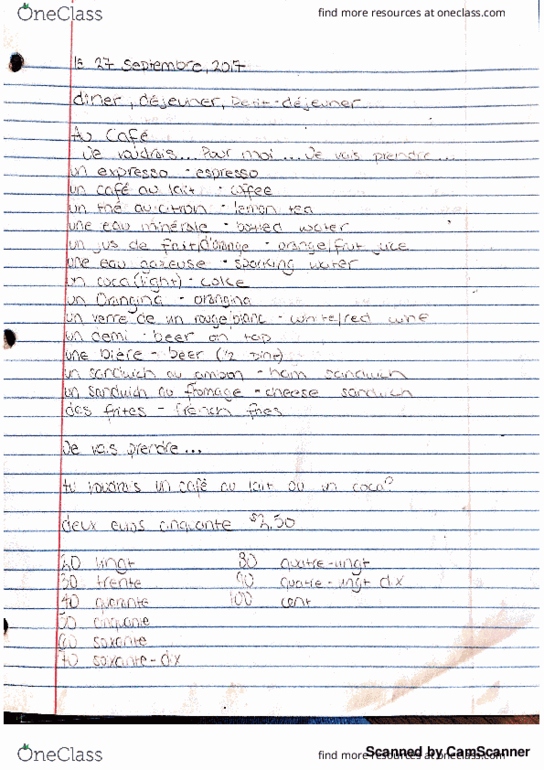 OneClass find more resources at oneclass.com
le 27 Septembre, 2017
diner, déjeuner, petit-déjeuner
Au Café
Je voudrais... Pour moi... Je vais prendre...
un expresso - espresso
un café au lait - coffee
un thé au citron - lemon tea
une eau minérale - bottled water
un jus de fruit/d'orange - orange/fruit juice
une eau gazeuse - sparking water
un coca (light) - coke
un Orangina - orangina
un verre de vin rouge/blanc - white/red wine
un demi - beer on tap
une bière - beer (1/2 pint)
un sandwich au jambon - ham sandwich
un sandwich au fromage - cheese sandwich
des frites - french fries
Je vais prendre...
tu voudrais un café au lait ou un coca?
deux euros cinquante $2,50
20 vingt 80 quatre-vingt
30 trente 90 quatre-vingt dix
40 quarante 100 cent
50 cinquante
60 soixante
70 soixante-dix
OneClass find more resources at oneclass.com
Scanned by CamScanner